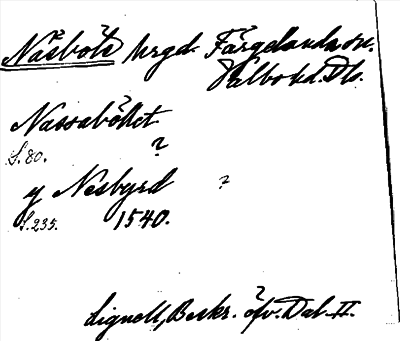 Näsböle hrgd. Färgelanda sn.
Valbo hd. Dls.
Nassabölet
S. 80. ?
y Nesbyrd ?
S. 235. 1540.
Lignell, Beskr. öfv. Dal. II.